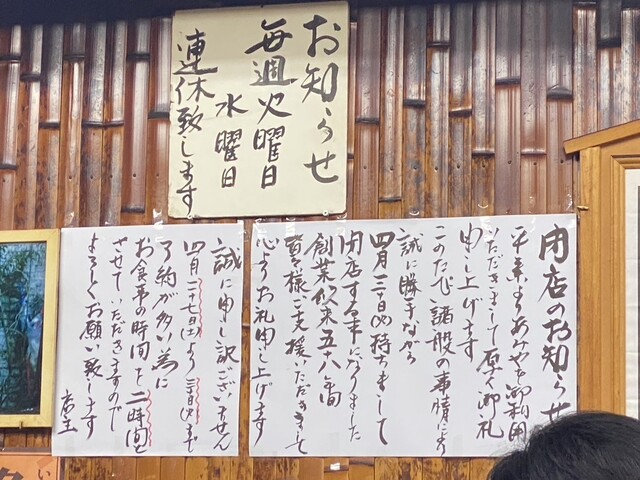 お知らせ
毎週火曜日
水曜日
連休致します
閉店のお知らせ
平素よりあみやを御利用
いただきまして厚く御礼
申し上げます
このたび諸般の事情により
誠に勝手ながら
四月三十日(火)を持ちまして
閉店する事になりました
創業以来五十八年間
皆々様ご支援いただきまして
心よりお礼申し上げます
誠に申し訳ございません
四月二十七日(土)より三十日(火)まで
予約が多い為に
お食事の時間を二時間と
させていただきますので
よろしくお願い致します
店主